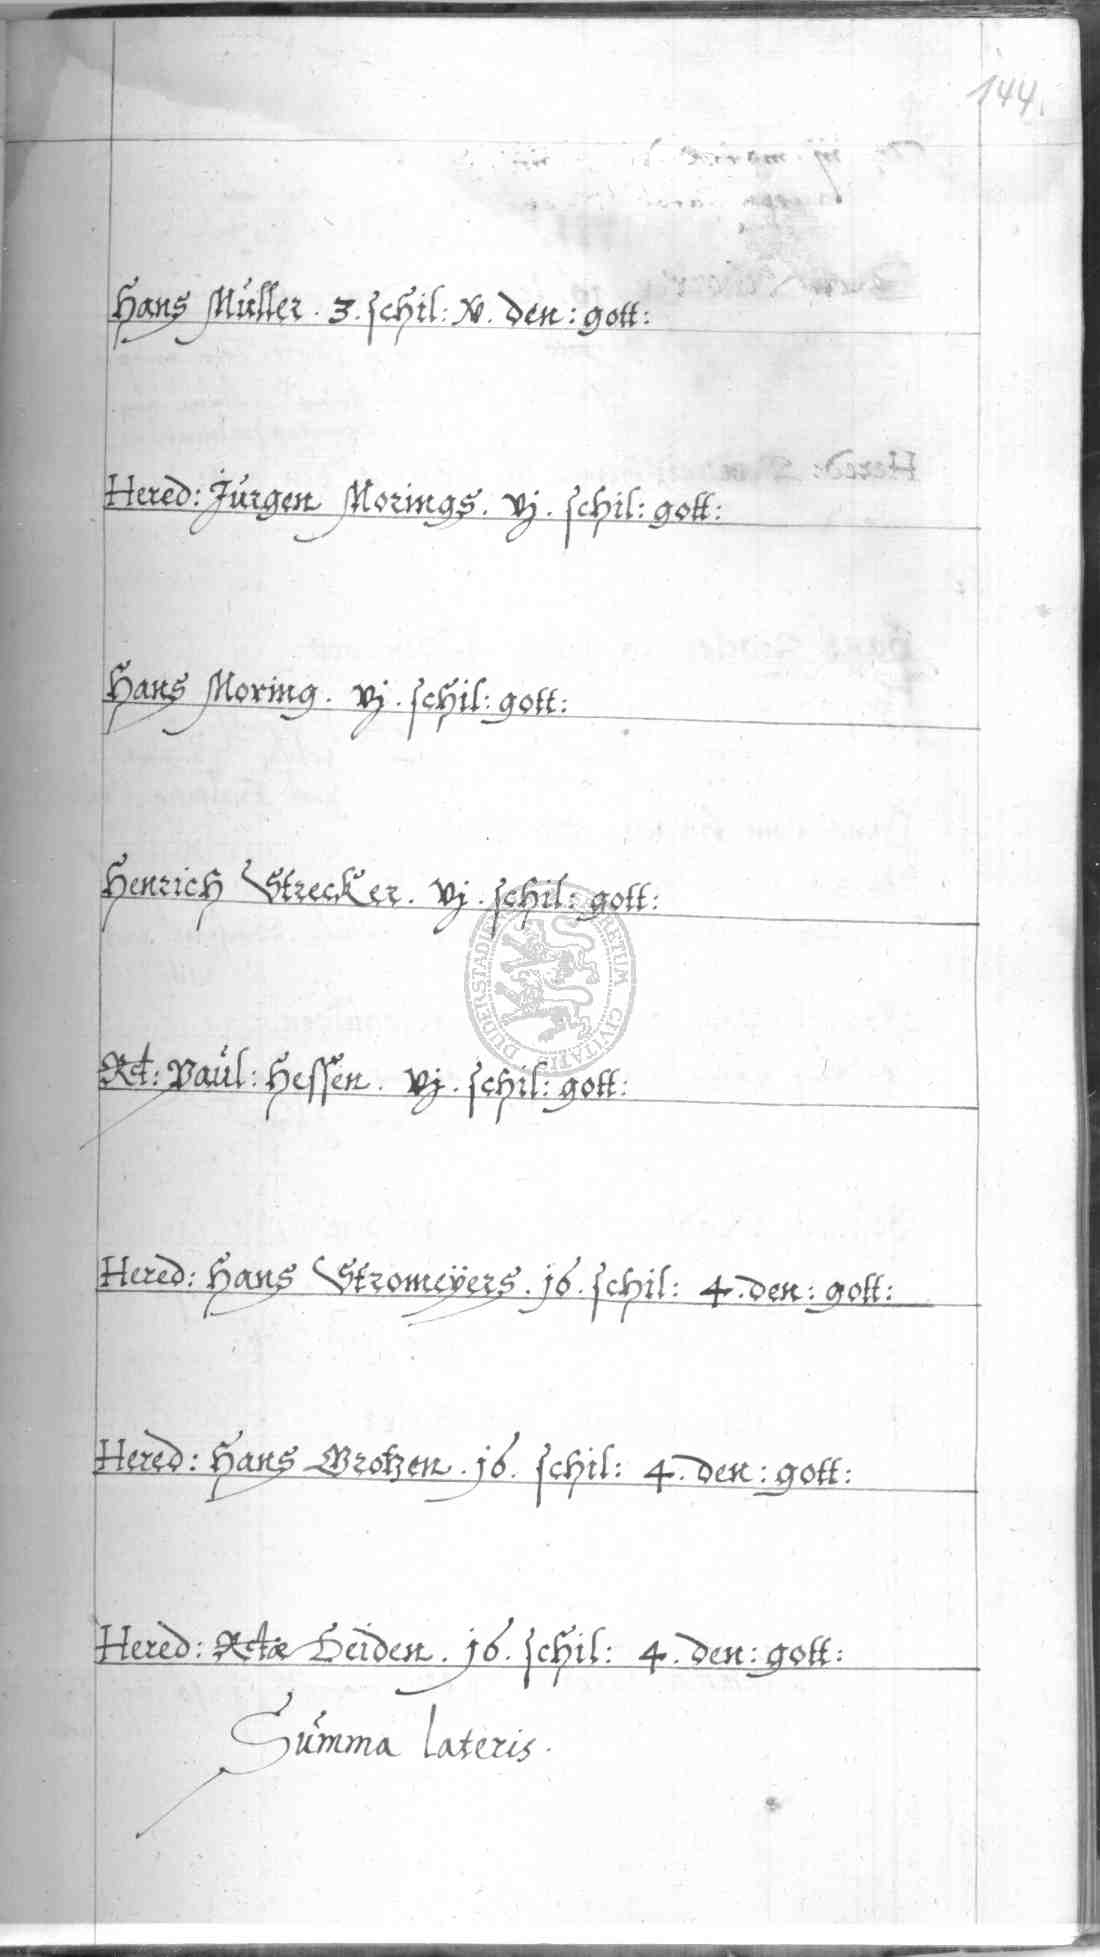 144.
Hans Müller . 3 . schil: xv . den : gott:
Hered: Jürgen Morings . vj . schil: gott:
Hans Moring . vj . schil: gott:
Henrich Strecker . vj . schil: gott:
Rel: Paül: Hessen . vj . schil: gott:
Hered: Hans Stromeÿers . j6 . schil: 4 . den : gott:
Hered: Hans Brotzen . j6 . schil: 4 . den : gott:
Hered: Heiden . j6 . schil: 4 . den : gott:
Summa lateris .